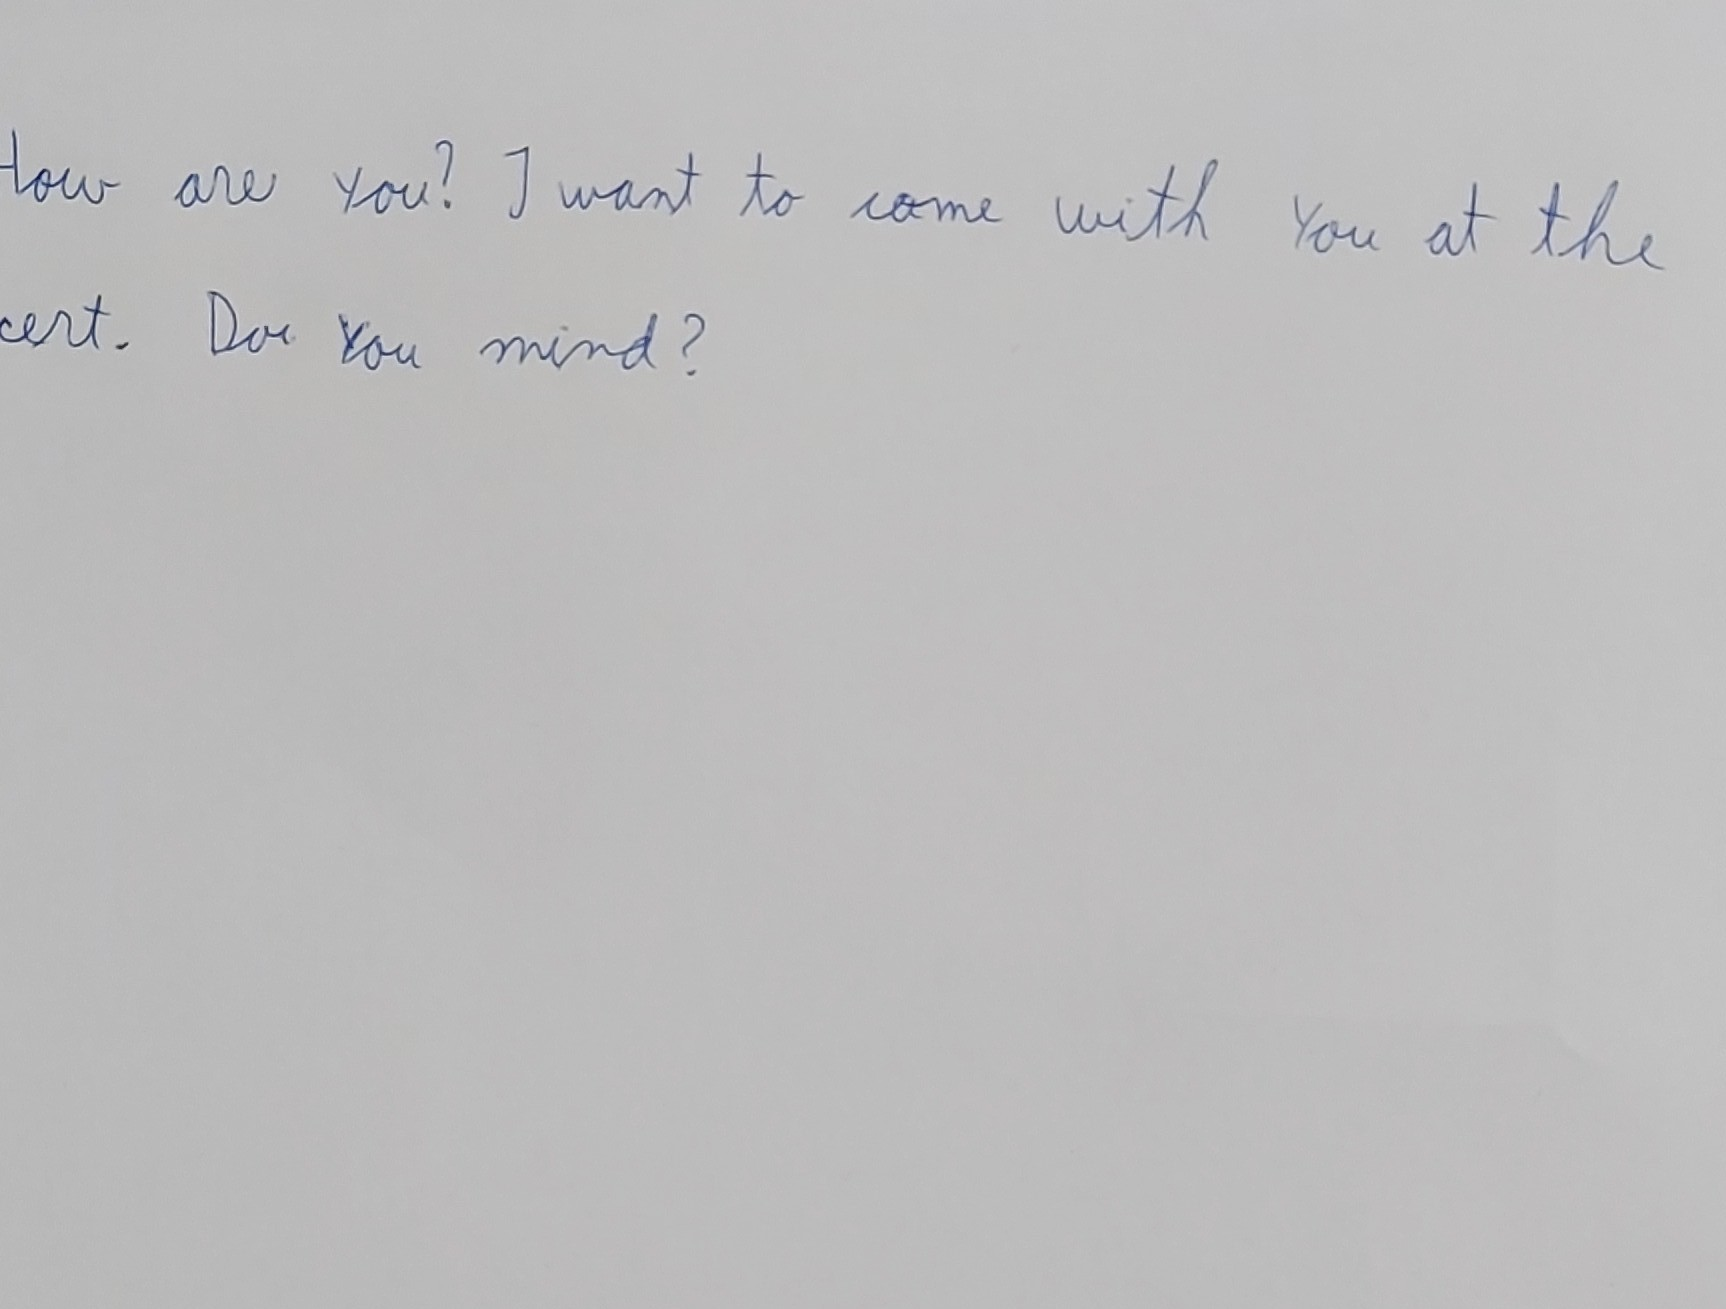 How are you? I want to come with you at the
cert. Do you mind?